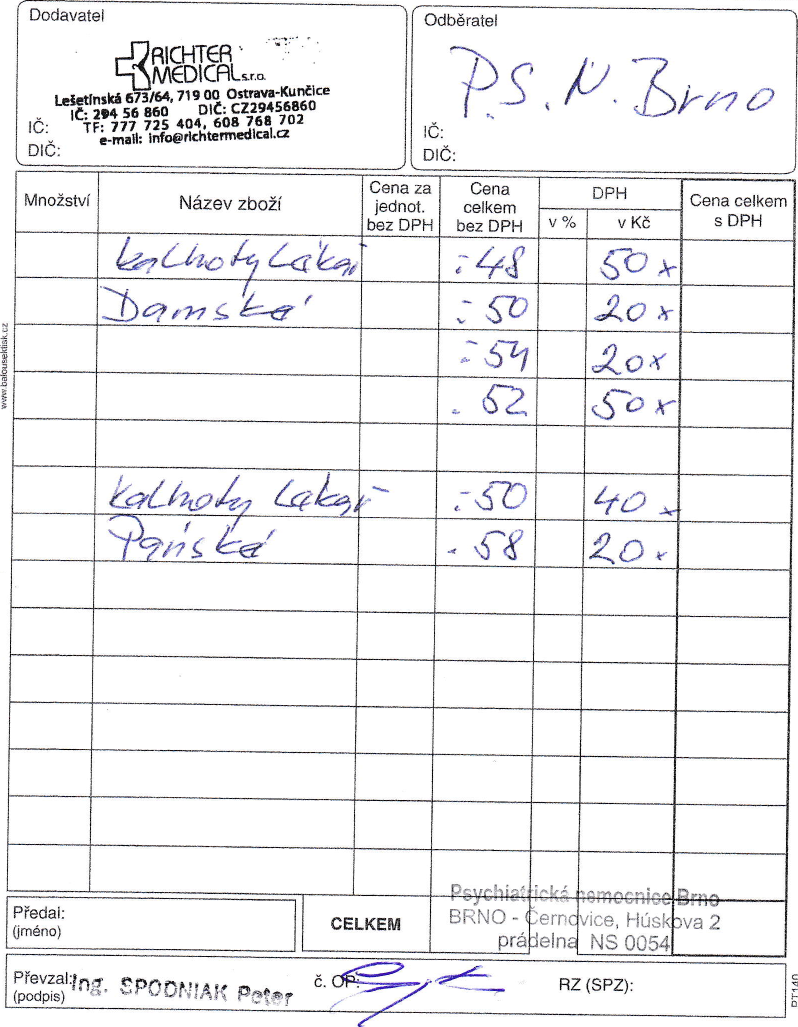 Dodavatel
RICHTER
MEDICAL s.r.o.
Lešetínská 673/64, 719 00 Ostrava-Kunčice
IČ: 294 56 860 DIČ: CZ29456860
TF: 777 725 404, 608 768 702
e-mail: info@richtermedical.cz
IČ:
DIČ:
Odběratel
P.S.N. Brno
IČ:
DIČ:
Množství Název zboží Cena za jednot. bez DPH Cena celkem bez DPH DPH v % v Kč Cena celkem s DPH
kalhoty Lékař :48 50x
Damské :50 20x
:54 20x
. 52 50x
kalhoty Lékař :50 40x
Pánské . 58 20x
www.balousektisk.cz
Psychiatrická nemocnice Brno
BRNO - Černovice, Húskova 2
prádelna NS 0054
Předal:
(jméno)
CELKEM
Převzal: Ing. SPODNIAK Peter č. OP: RZ (SPZ):
(podpis)
PT140